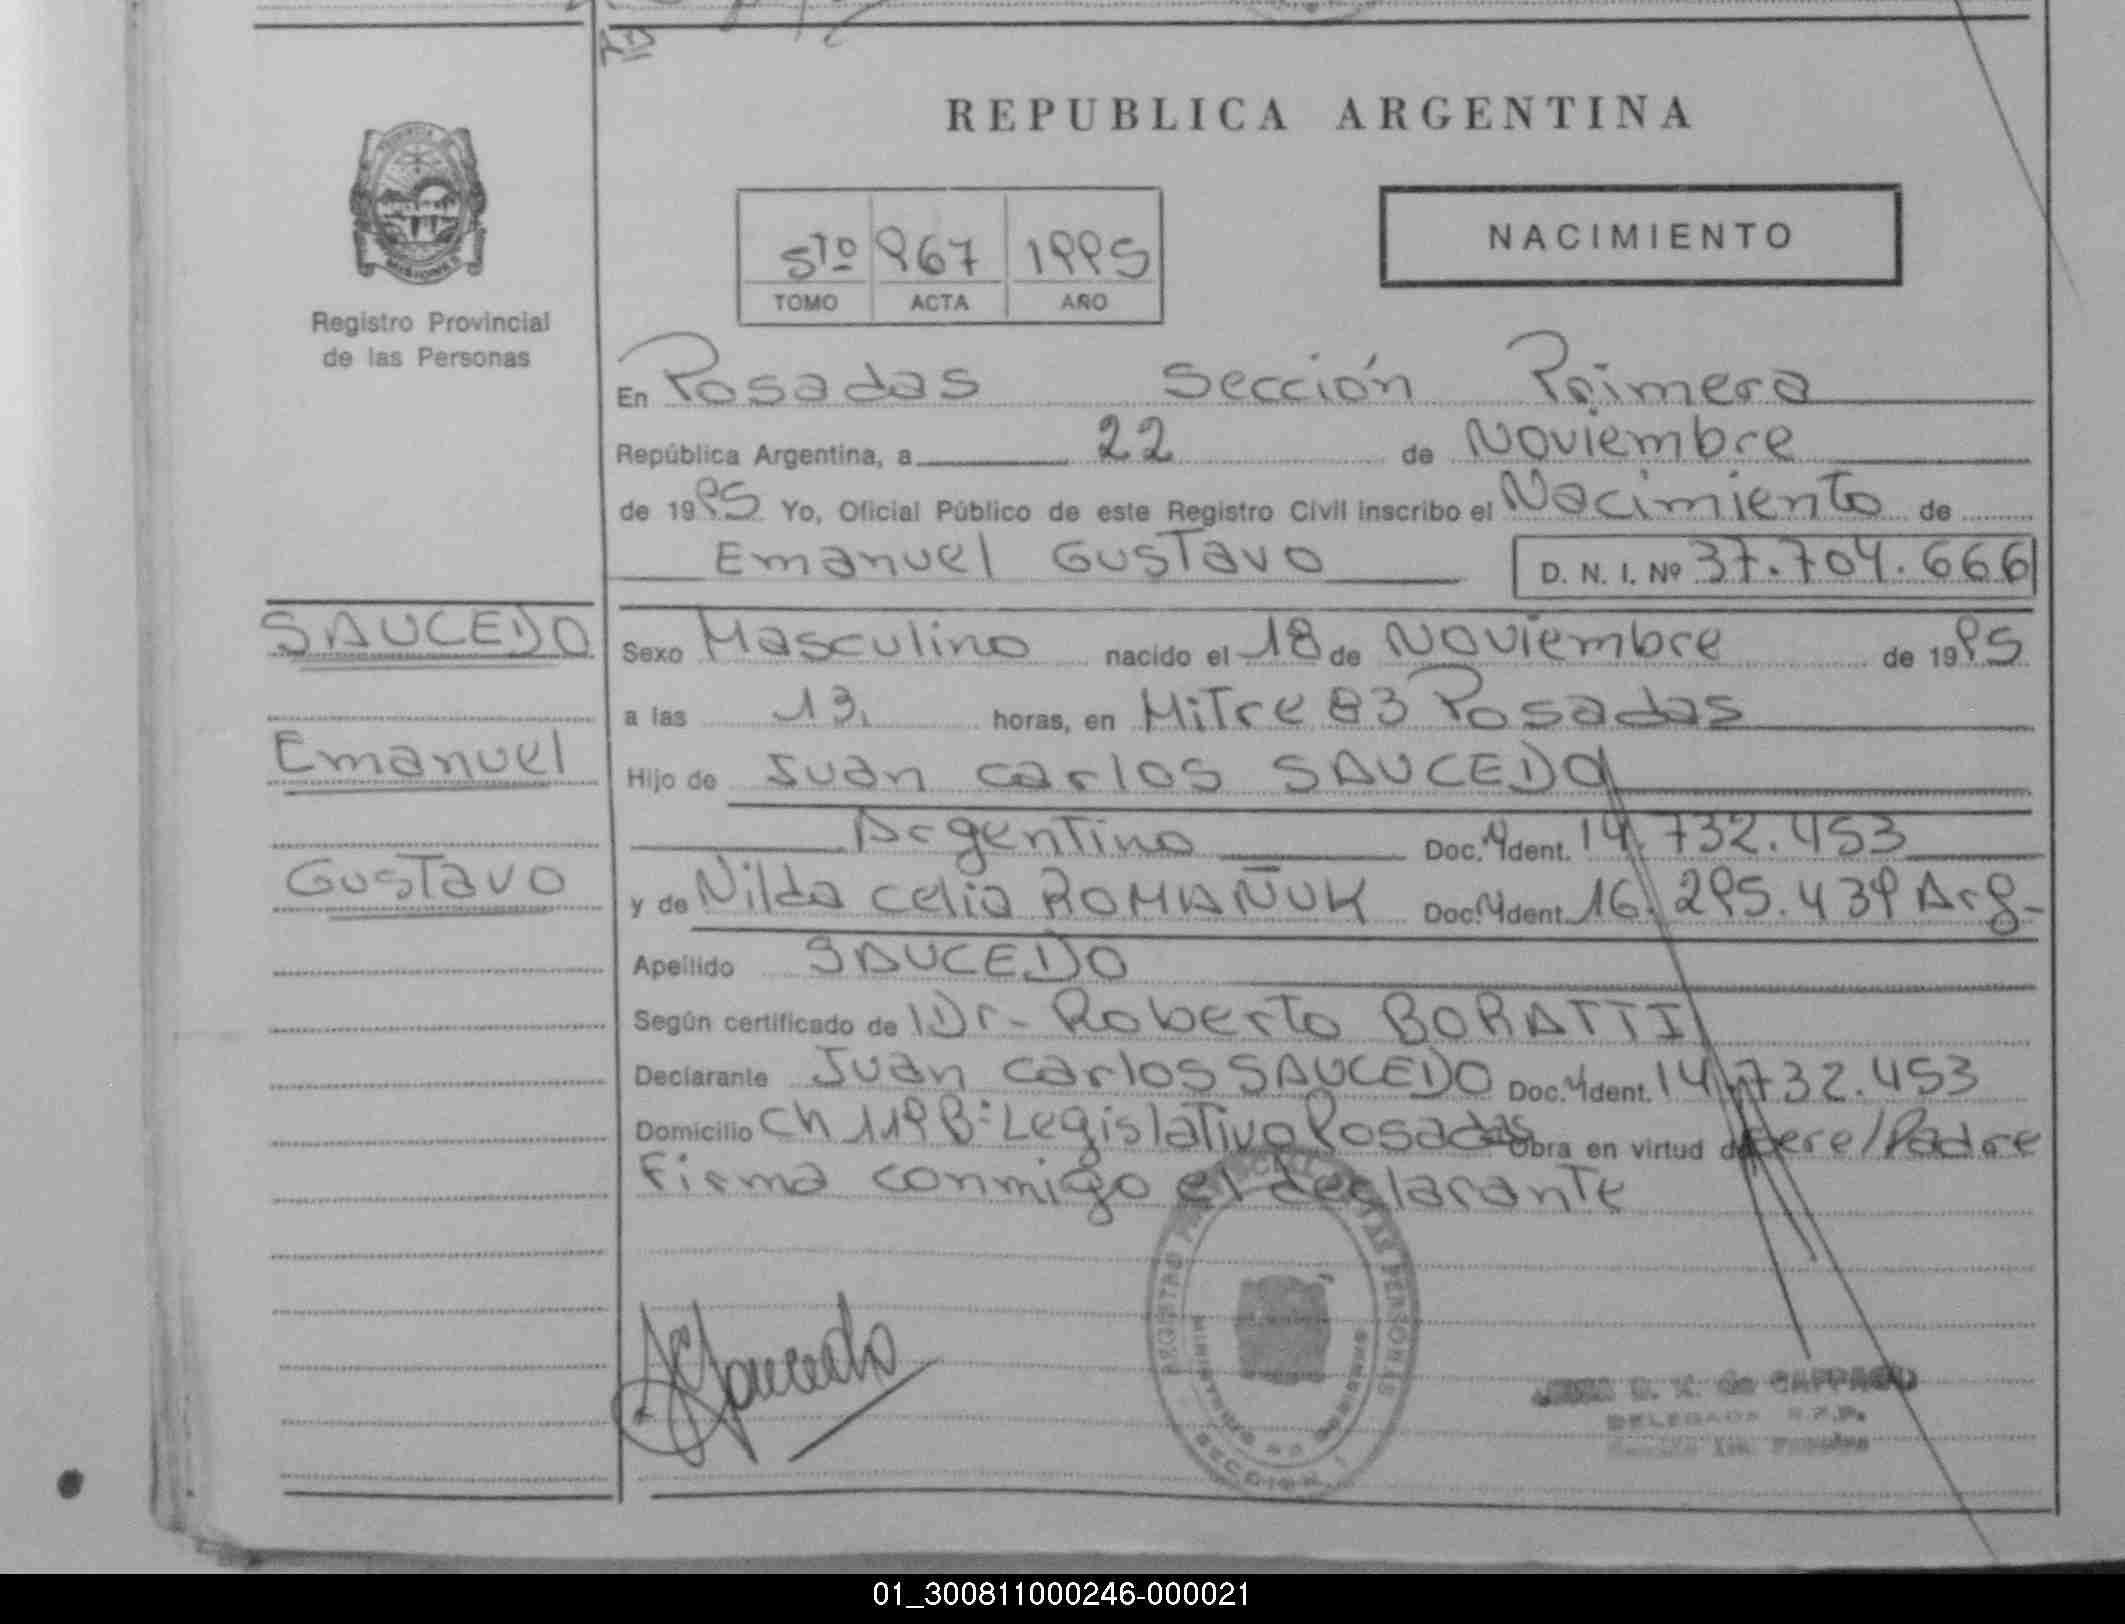 REPUBLICA ARGENTINA
MISIONES
Registro Provincial
de las Personas
5to 967 1995
TOMO ACTA AÑO
NACIMIENTO
En Posadas Sección Primera
República Argentina, a 22 de Noviembre
de 1995 Yo, Oficial Público de este Registro Civil inscribo el Nacimiento de
Emanuel Gustavo D. N. I. Nº 37.704.666
SAUCEDO
Emanuel
Gustavo
Sexo Masculino nacido el 18 de Noviembre de 1995
a las 13 horas, en Mitre 83 Posadas
Hijo de Juan Carlos SAUCEDO
Argentino Doc. Ident. 14.732.453
y de Nilda Celia ROMAÑUK Doc. Ident. 16.295.439 Arg-
Apellido SAUCEDO
Según certificado de Dr- Roberto BORATTI
Declarante Juan Carlos SAUCEDO Doc. Ident. 14.732.453
Domicilio Ch 119 Bº Legislativo Posadas Obra en virtud de /Padre
Firma conmigo el declarante
Saucedo
REGISTRO DE LAS PERSONAS
MINISTERIO DE GOBIERNO
SECCION 1
DELEGADA R.P.P.
01_300811000246-000021